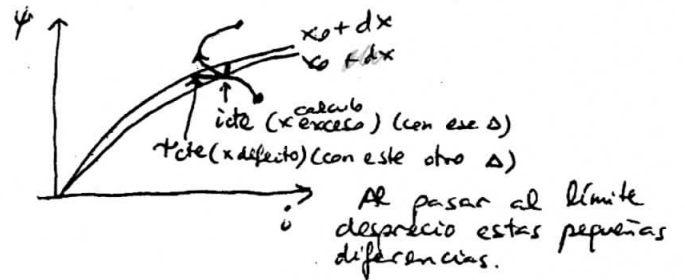 ψ
x₀ + dx
x₀ + dx
cálculo
i cte (x exceso) (con ese Δ)
ψ cte (x defecto) (con este otro Δ)
i
Al pasar al límite
desprecio estas pequeñas
diferencias.